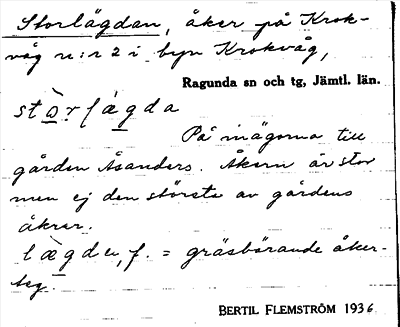 Storlägdan, åker på Krok-
våg n:r 2 i byn Krokvåg,
Ragunda sn och tg, Jämtl. län.
stò̱r/lǽg̱da
På inägorna till
gården Åsanders. Åkern är stor
men ej den största av gårdens
åkrar.
læ̀g̱de, f. = gräsbärande åker-
teg.
BERTIL FLEMSTRÖM 1936